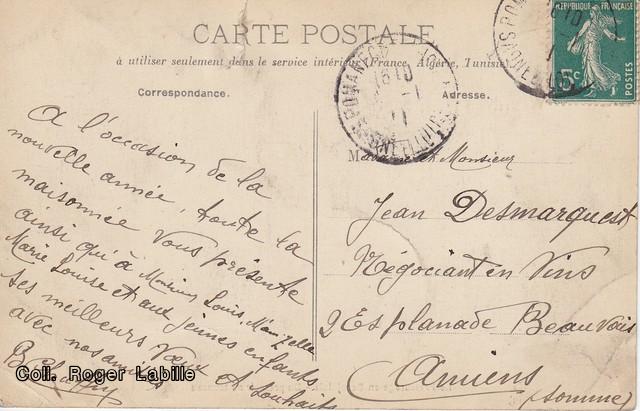 CARTE POSTALE
à utiliser seulement dans le service intérieur France, Algérie, Tunisie
Correspondance.
Adresse.
RÉPUBLIQUE FRANÇAISE
5c
POSTES
A l'occasion de la
nouvelle année, toute la
maisonnée vous présente
ainsi qu'à Monsieur Louis, Mam'zelle
Marie Louise et aux jeunes enfants
ses meilleurs vœux et souhaits
avec nos amitiés
Madame et Monsieur
Jean Desmarquest
Négociant en Vins
2 Esplanade Beauvais
Amiens
(Somme)
Coll. Roger Labille